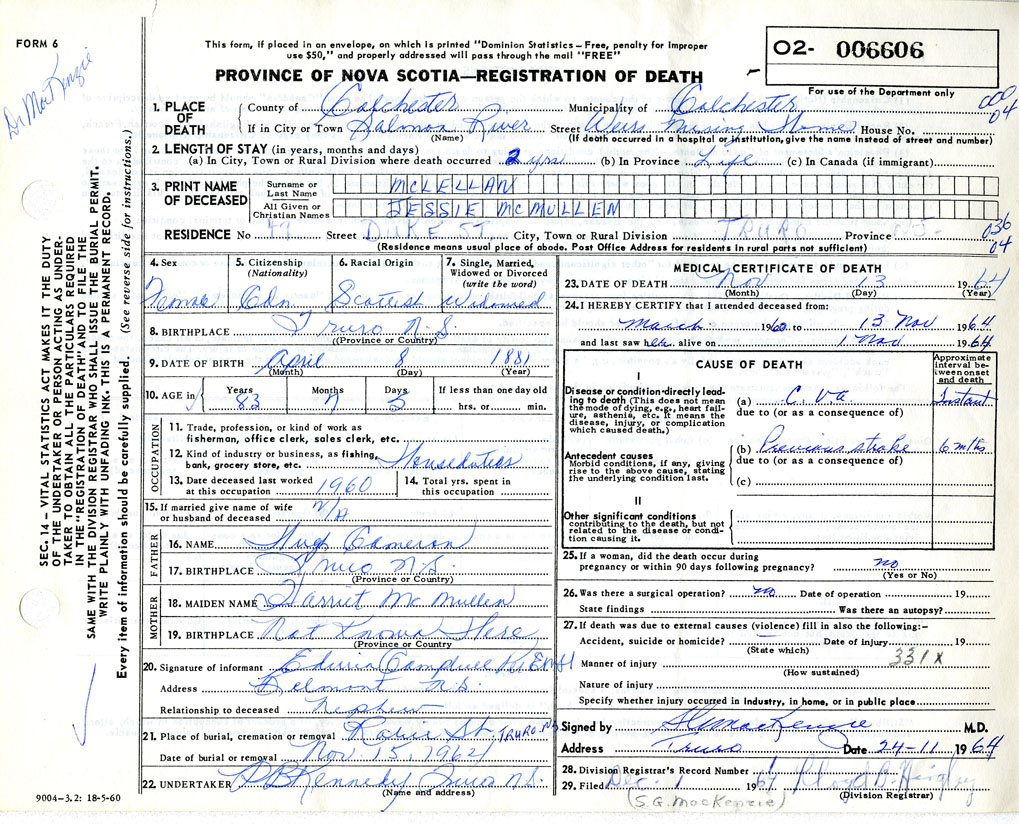 FORM 6
Dr MacKenzie
This form, if placed in an envelope, on which is printed "Dominion Statistics – Free, penalty for improper
use $50," and properly addressed will pass through the mail "FREE"
PROVINCE OF NOVA SCOTIA—REGISTRATION OF DEATH
02- 006606
For use of the Department only
1. PLACE OF DEATH County of Colchester Municipality of Colchester
000 04
If in City or Town Salmon River Street Weirs Nursing Home House No.
(Name) (If death occurred in a hospital or institution, give name instead of street and number)
2. LENGTH OF STAY (in years, months and days)
(a) In City, Town or Rural Division where death occurred 2 yrs (b) In Province Life (c) In Canada (if immigrant)
3. PRINT NAME OF DECEASED Surname or Last Name MCLELLAN
All Given or Christian Names JESSIE MCMULLEN
RESIDENCE No 47 Street DUKE ST City, Town or Rural Division TRURO Province N.S.
036 04
(Residence means usual place of abode. Post Office Address for residents in rural parts not sufficient)
4. Sex Female
5. Citizenship (Nationality) Cdn
6. Racial Origin Scottish
7. Single, Married, Widowed or Divorced (write the word) Widowed
8. BIRTHPLACE Truro N.S.
(Province or Country)
9. DATE OF BIRTH April 8 1881
(Month) (Day) (Year)
10. AGE in Years 83 Months 7 Days 5 If less than one day old hrs. or min.
OCCUPATION
11. Trade, profession, or kind of work as fisherman, office clerk, sales clerk, etc.
12. Kind of industry or business, as fishing, bank, grocery store, etc. Houseduties
13. Date deceased last worked at this occupation 1960
14. Total yrs. spent in this occupation
15. If married give name of wife or husband of deceased N/A
FATHER
16. NAME Hugh Cameron
17. BIRTHPLACE Truro N.S.
(Province or Country)
MOTHER
18. MAIDEN NAME Harriet McMullen
19. BIRTHPLACE Not Known Here
(Province or Country)
20. Signature of informant Edwin Campbell
Address Belmont N.S.
Relationship to deceased nephew
21. Place of burial, cremation or removal Robie St. TRURO NS
Date of burial or removal Nov. 15, 1964
22. UNDERTAKER Kennedy Truro N.S.
(Name and address)
9004–3.2: 18-5-60
MEDICAL CERTIFICATE OF DEATH
23. DATE OF DEATH Nov 13 1964
(Month) (Day) (Year)
24. I HEREBY CERTIFY that I attended deceased from:
March 1960 to 13 Nov 1964
and last saw her alive on 1 Nov 1964
CAUSE OF DEATH
Approximate interval between onset and death
I
Disease or condition directly leading to death (This does not mean the mode of dying, e.g., heart failure, asthenia, etc. It means the disease, injury, or complication which caused death.)
(a) C.V.a Instant
due to (or as a consequence of)
(b) Previous stroke 6 mths
Antecedent causes
Morbid conditions, if any, giving rise to the above cause, stating the underlying condition last.
due to (or as a consequence of)
(c)
II
Other significant conditions contributing to the death, but not related to the disease or condition causing it.
25. If a woman, did the death occur during pregnancy or within 90 days following pregnancy? no
(Yes or No)
26. Was there a surgical operation? no Date of operation 19
State findings Was there an autopsy?
27. If death was due to external causes (violence) fill in also the following:–
Accident, suicide or homicide? Date of injury 19
(State which)
331X
Manner of injury
(How sustained)
Nature of injury
Specify whether injury occurred in industry, in home, or in public place
Signed by SG MacKenzie M.D.
Address Truro Date 24-11 1964
28. Division Registrar's Record Number
29. Filed Dec. 1 1964
(Division Registrar)
(S.G. MacKenzie)
SEC. 14 – VITAL STATISTICS ACT MAKES IT THE DUTY
OF THE UNDERTAKER OR PERSON ACTING AS UNDER-
TAKER TO OBTAIN ALL THE PARTICULARS REQUIRED
IN THE "REGISTRATION OF DEATH" AND TO FILE THE
SAME WITH THE DIVISION REGISTRAR WHO SHALL ISSUE THE BURIAL PERMIT.
WRITE PLAINLY WITH UNFADING INK. THIS IS A PERMANENT RECORD.
Every item of information should be carefully supplied. (See reverse side for instructions.)